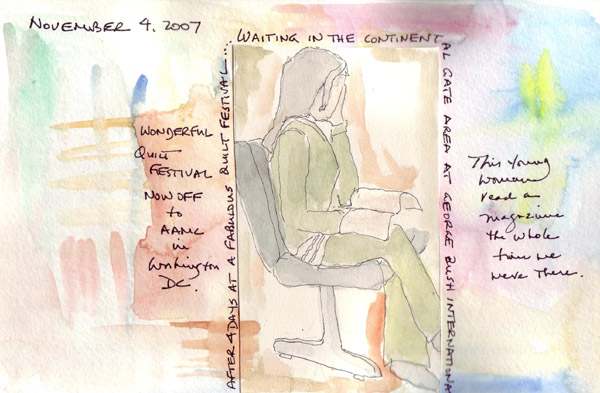 NOVEMBER 4, 2007
AFTER 4 DAYS AT A FABULOUS QUILT FESTIVAL...
WAITING IN THE CONTINENTAL GATE AREA AT GEORGE BUSH INTERNATIONAL
WONDERFUL
QUILT
FESTIVAL
NOW OFF
to
AANC
in
Washington
DC.
This young
woman
read a
magazine
the whole
time we
were there.